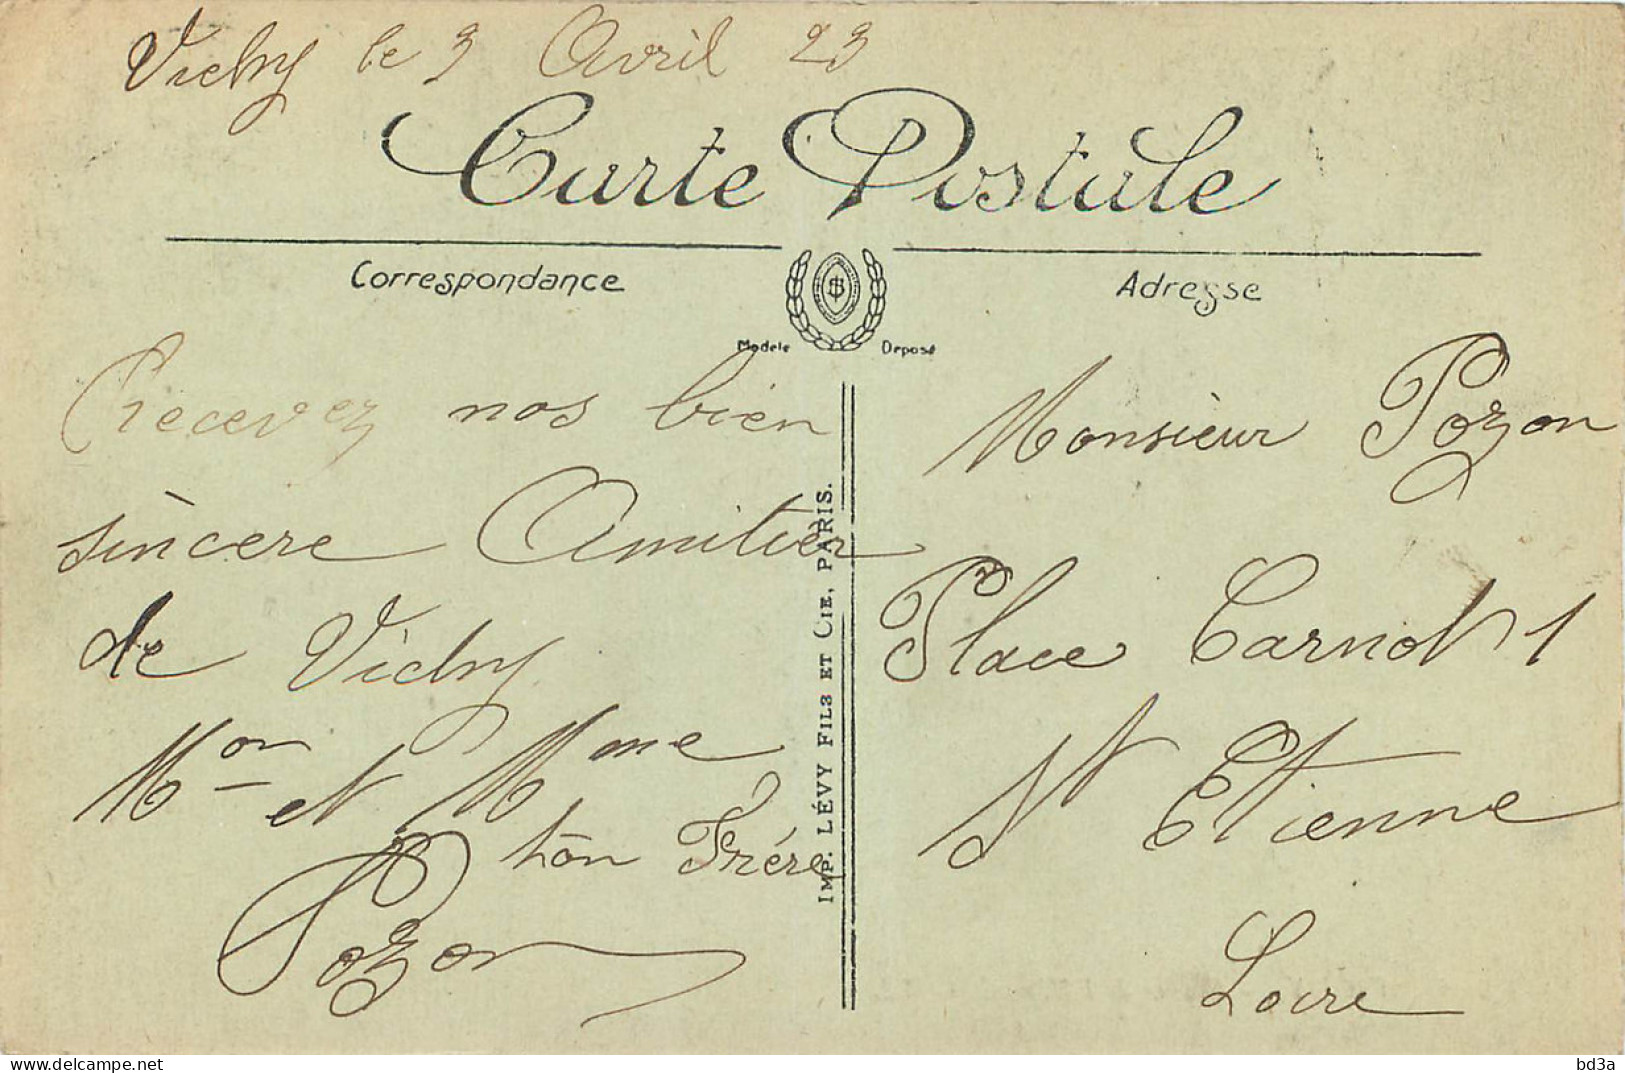 Vichy le 3 Avril 23
Carte Postale
Correspondance
Adresse
Modèle Déposé
Recevez nos bien
sincère Amitier
de Vichy
Mon et Mme
ton Frére
Pozon
IMP. LÉVY FILS ET CIE, PARIS.
Monsieur Pozon
Place Carnot 1
St Etienne
Loire
delcampe.net
bd3a